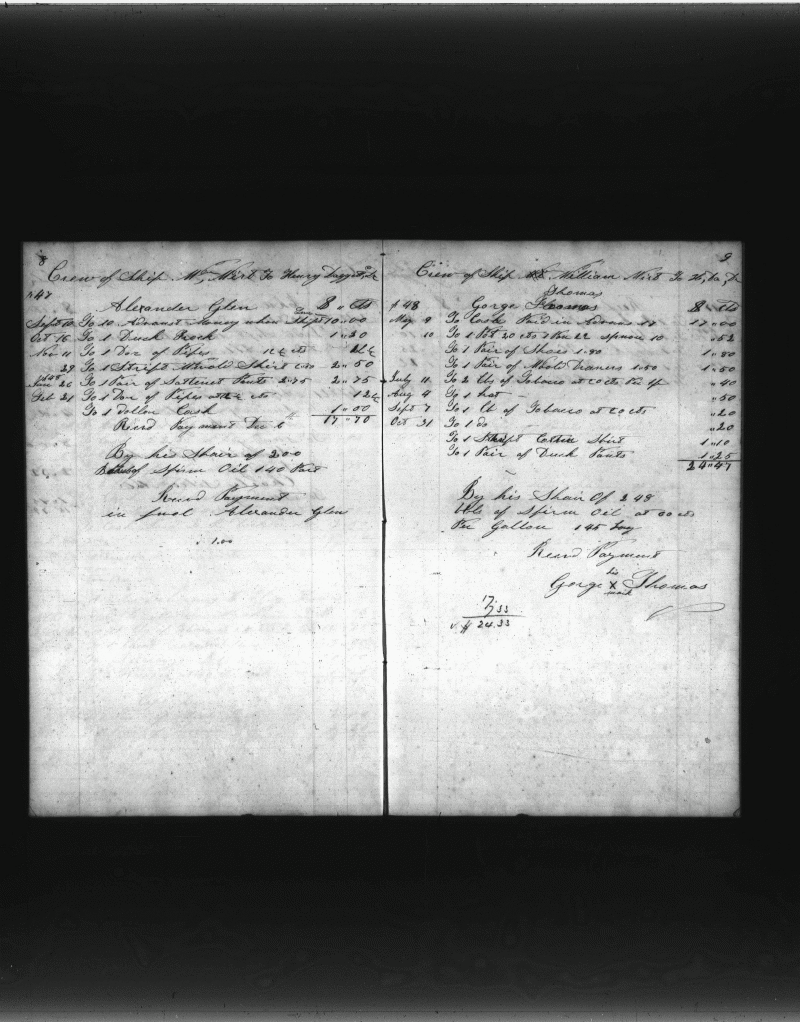 8
Crew of Ship Wm Wirt To Henry Daggett Dr
1847
Alexander Glen $ " Cts
Sept 10 To 10 Advanst Money when Shipt 10"00
Oct 16 To 1 Duck Frock 1"30
Nov 11 To 1 Doz of Pipes 12½ cts 12½
29 To 1 Stript Shirt 2"50
1848
Jane 26 To 1 Pair of Sattinet Pants 2.75 2"75
Feb 21 To 1 Doz of Pipes cts 12½
To 1 dollar Cash 1"00
Recvd Payment Dec 6th 17"70
By his Shair of 200
of Spirm Oil 140 Part
Recvd Payment
in full Alexander Glen
1.00
9
Crew of Ship William Wirt To Dr
Thomas
1848 Gorge Thomas $ " Cts
May 9 To Cash Paid in Advans 17 17"00
10 To 1 Pot 20 cts 1 Pan 22 Spoon 10 "52
To 1 Pair of Shoes 1.80 1"80
To 1 Pair of Trowsers 1.50 1"50
July 11 To 2 Lbs of Tobacco at 20 cts "40
Aug 4 To 1 hat "50
Sept 7 To 1 Lb of Tobacco at 20 cts "20
Oct 31 To 1 do "20
To 1 Stript Shirt 1"10
To 1 Pair of Duck Pants 1"25
24"47
By his Shair Of 248
bbls of Spirm Oil at 00 cts
Per Gallon 145 Lay
Recvd Payment
his
Gorge X Thomas
mark
17/33
24.33